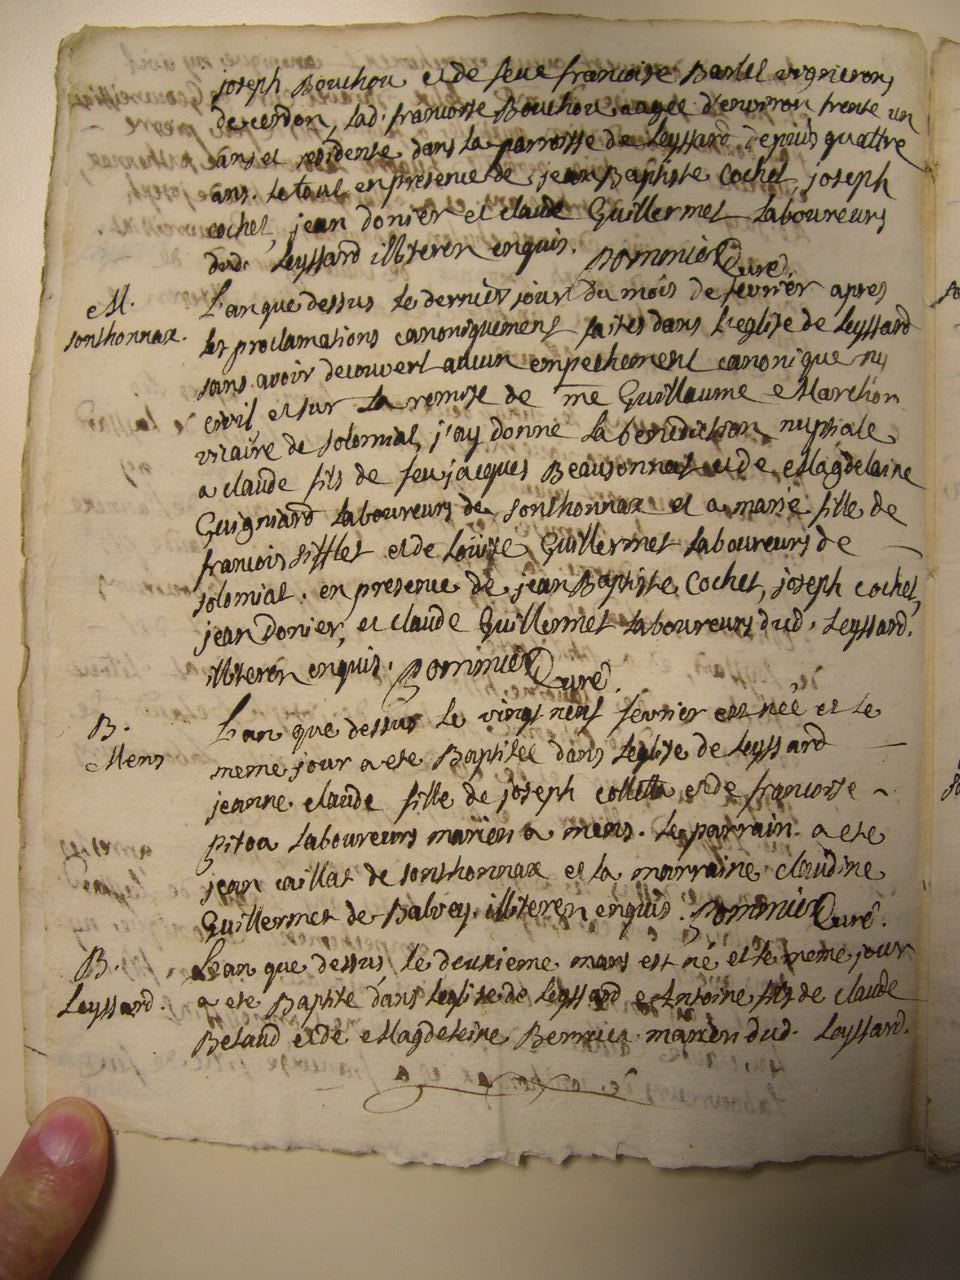 joseph Bouchou et de feue francoise Bartel vignerons
de cerdon, lad. francoise Bouchou aagée d'environ trente un
ans et residente dans la parroisse de Leyssard depuis quattre
ans. le tout en presence de jean Baptiste Cochet, joseph
cochet, jean donier et claude Guillermet Laboureurs
dud. Leyssard illiteren enquis. pommier Curé.
M.
sonthonnax.
L'an que dessus le dernier jour du mois de fevrier apres
les proclamations canoniquement faites dans l'eglise de Leyssard
sans avoir decouvert aucun empechement canonique ny
civil, et sur la remise de me Guillaume Marchon
vicaire de solomiat, j'ay donne la benediction nuptiale
a claude fils de feu jacques Beausonnat et de Magdelaine
Guigniard Laboureurs de sonthonnax et a marie fille de
francois sifflet et de Louise Guillermet Laboureurs de
solomiat. en presence de jean Baptiste Cochet, joseph cochet,
jean donier, et claude Guillermet Laboureurs dud. Leyssard.
illiteren enquis. pommier Curé.
B.
Mens
L'an que dessus le vingt neuf fevrier est née et le
meme jour a ete Baptisée dans l'eglise de Leyssard
jeanne claude fille de joseph colletta et de francoise
pitoa Laboureurs marien a mens. le parrain a ete
jean caillat de sonthonnax et la marraine claudine
Guillermet de Balvey. illiteren enquis. pommier Curé.
B.
Leyssard.
L'an que dessus le deuxieme mars est né et le meme jour
a ete Baptisé dans l'eglise de Leyssard Antoine fils de claude
Betaud et de Magdeleine marien dud. Leyssard.